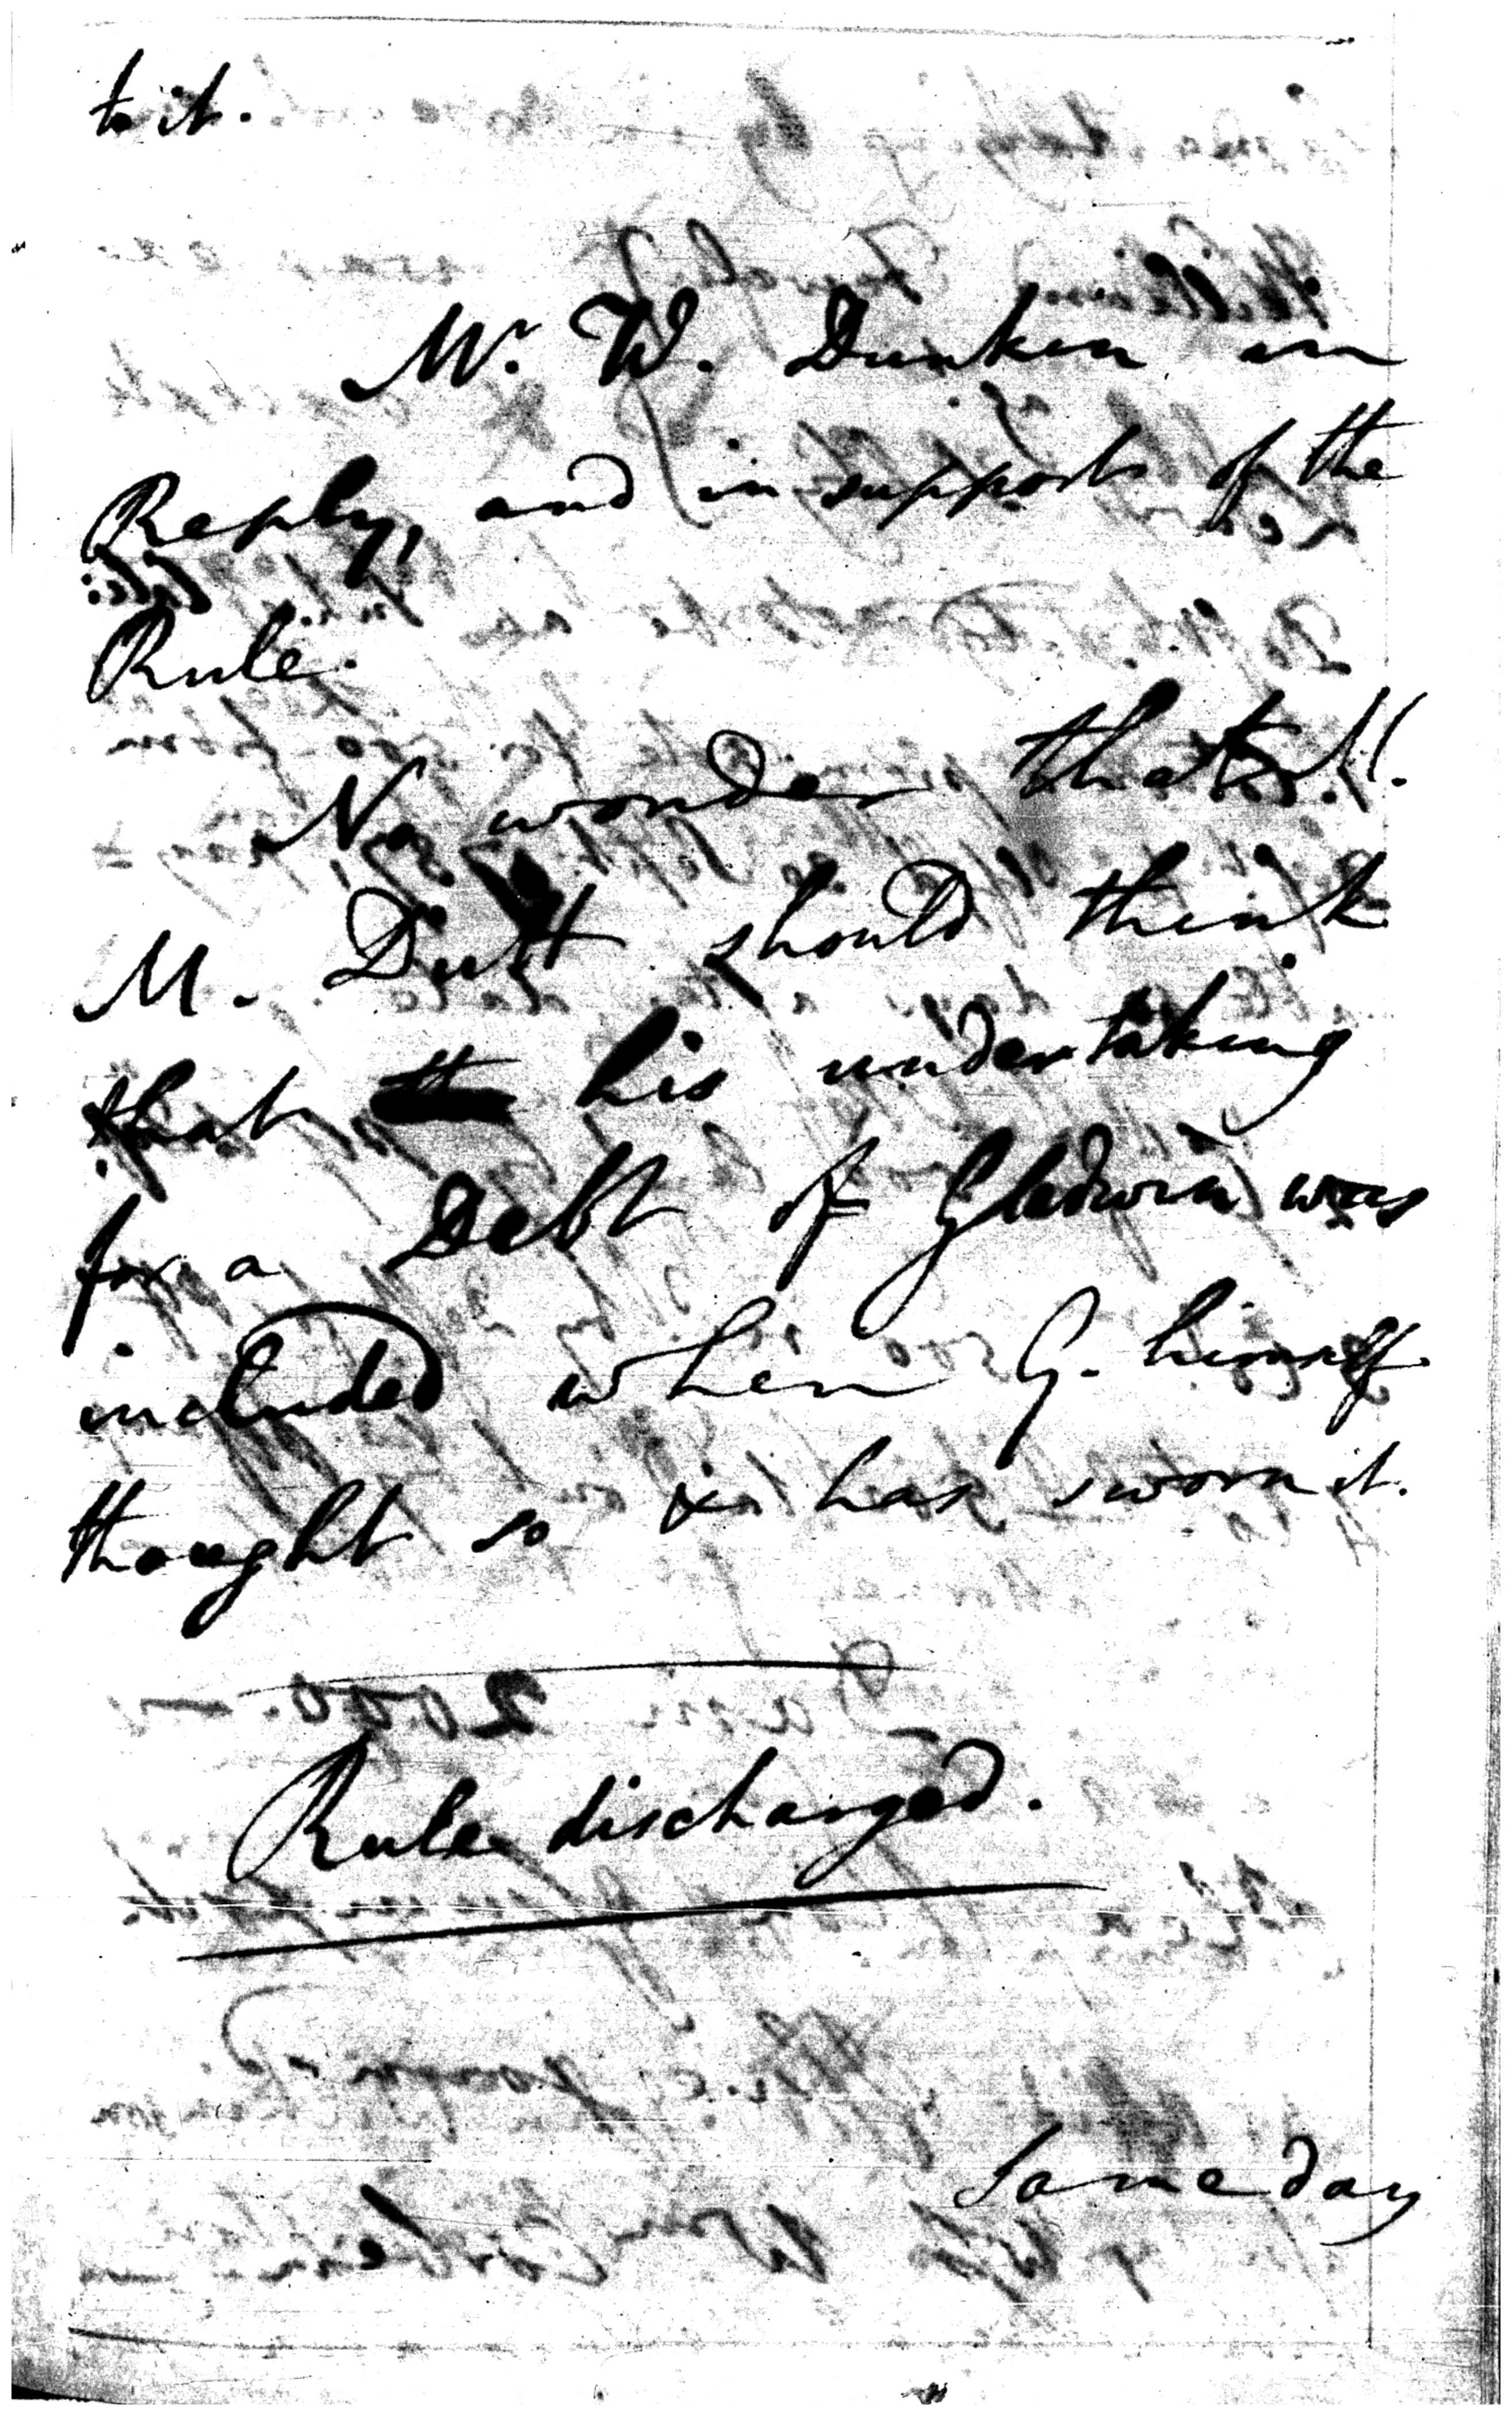 to it.
Mr. W. Dunkin in
Reply, and in support of the
Rule.
No wonder that
M. Dutt should think
that his undertaking
for a Debt of Gladwin was
included when G. himself
thought so & has sworn it.
Rule discharged.
Same day